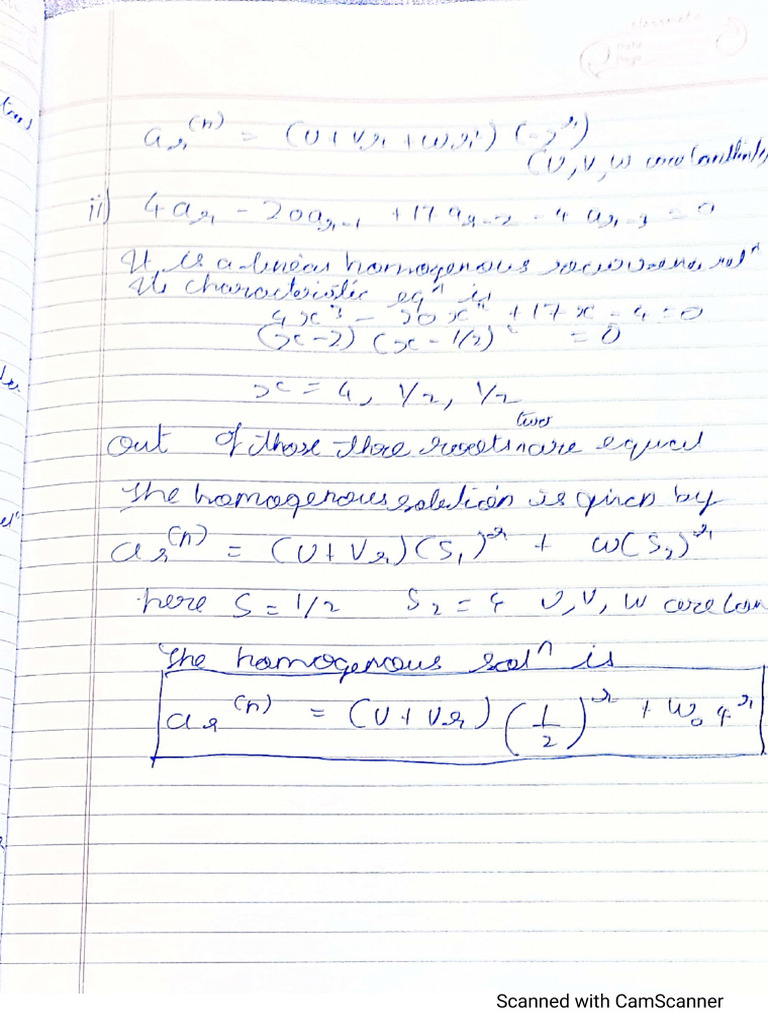 a_r^(h) = (U + Vr + Wr²) (-2^r)
(U, V, W are constants
ii) 4a_r - 20a_r-1 + 17a_r-2 - 4a_r-3 = 0
It is a linear homogenous
Its characteristic eqⁿ is
4x³ - 20x² + 17x - 4 = 0
(x-2) (x-1/2)² = 0
x = 4, 1/2, 1/2
two
Out of those three roots are equal
The homogenous solution is given by
a_r^(h) = (U + Vr) (S₁)^r + W(S₂)^r
here S = 1/2 S₂ = 4 U, V, W are con
The homogenous solⁿ is
a_r^(h) = (U + Vr) (1/2)^r + W. 4^r
Scanned with CamScanner